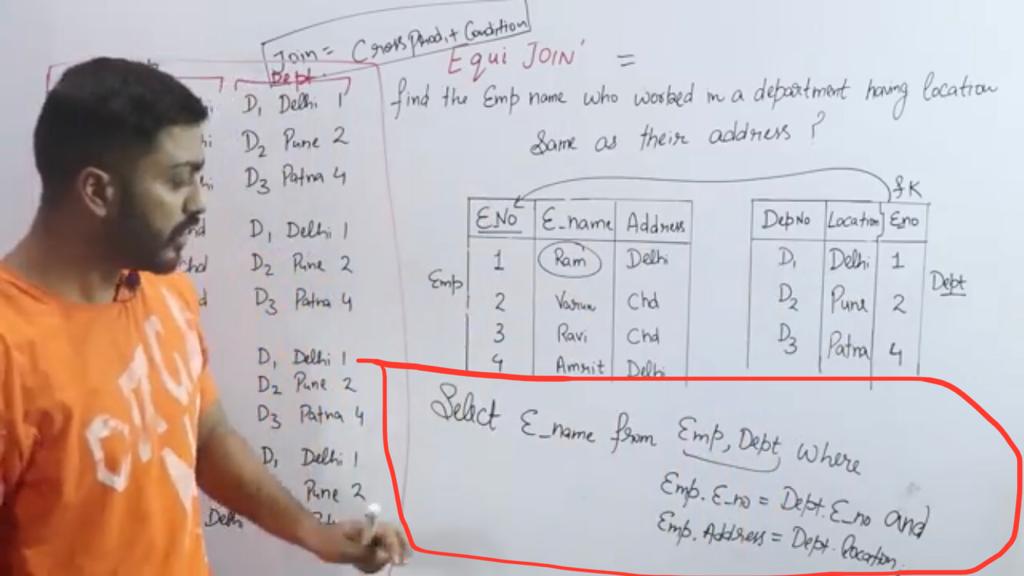 Join = Cross Prod. + Condition
Equi JOIN =
find the Emp name who worked in a department having location
Same as their address ?
Dept.
D1 Delhi 1
D2 Pune 2
D3 Patna 4
D1 Delhi 1
D2 Pune 2
D3 Patna 4
D1 Delhi 1
D2 Pune 2
D3 Patna 4
D1 Delhi 1
Pune 2
Delhi
Emp
E.No E_name Address
1 Ram Delhi
2 Varun Chd
3 Ravi Chd
4 Amrit Delhi
fK
DepNo Location Eno
D1 Delhi 1
D2 Pune 2
D3 Patna 4
Dept
Select E_name from Emp, Dept where
Emp. E_no = Dept. E_no and
Emp. Address = Dept. location.